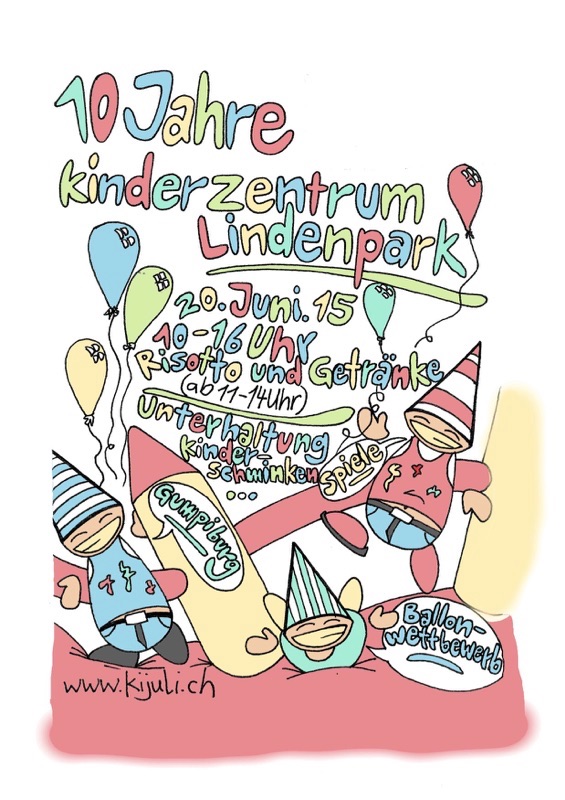 10 Jahre
kinderzentrum
Lindenpark
20. Juni. 15
10-16 Uhr
Risotto und Getränke
(ab 11-14 Uhr)
Unterhaltung
Kinder-
schminken
...
Spiele
Gumpiburg
Ballon-
wettbewerb
www.kijuli.ch